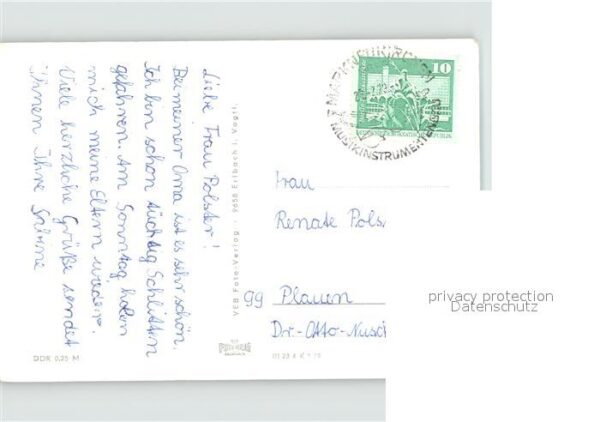 Liebe Frau Polster!
Bei meiner Oma ist es sehr schön.
Ich bin schon tüchtig Schlitten
gefahren. Am Sonntag holen
mich meine Eltern wieder.
Viele herzliche Grüße sendet
Ihnen Ihre Sabine
DDR 0,25 M
VEB Foto-Verlag · 9658 Erlbach i. Vogtl.
10
MUSIKINSTRUMENTEN
DEUTSCHE DEMOKRATISCHE REPUBLIK
Frau
Renate Pols
99 Plauen
Dr.-Otto-Nusch
privacy protection
Datenschutz